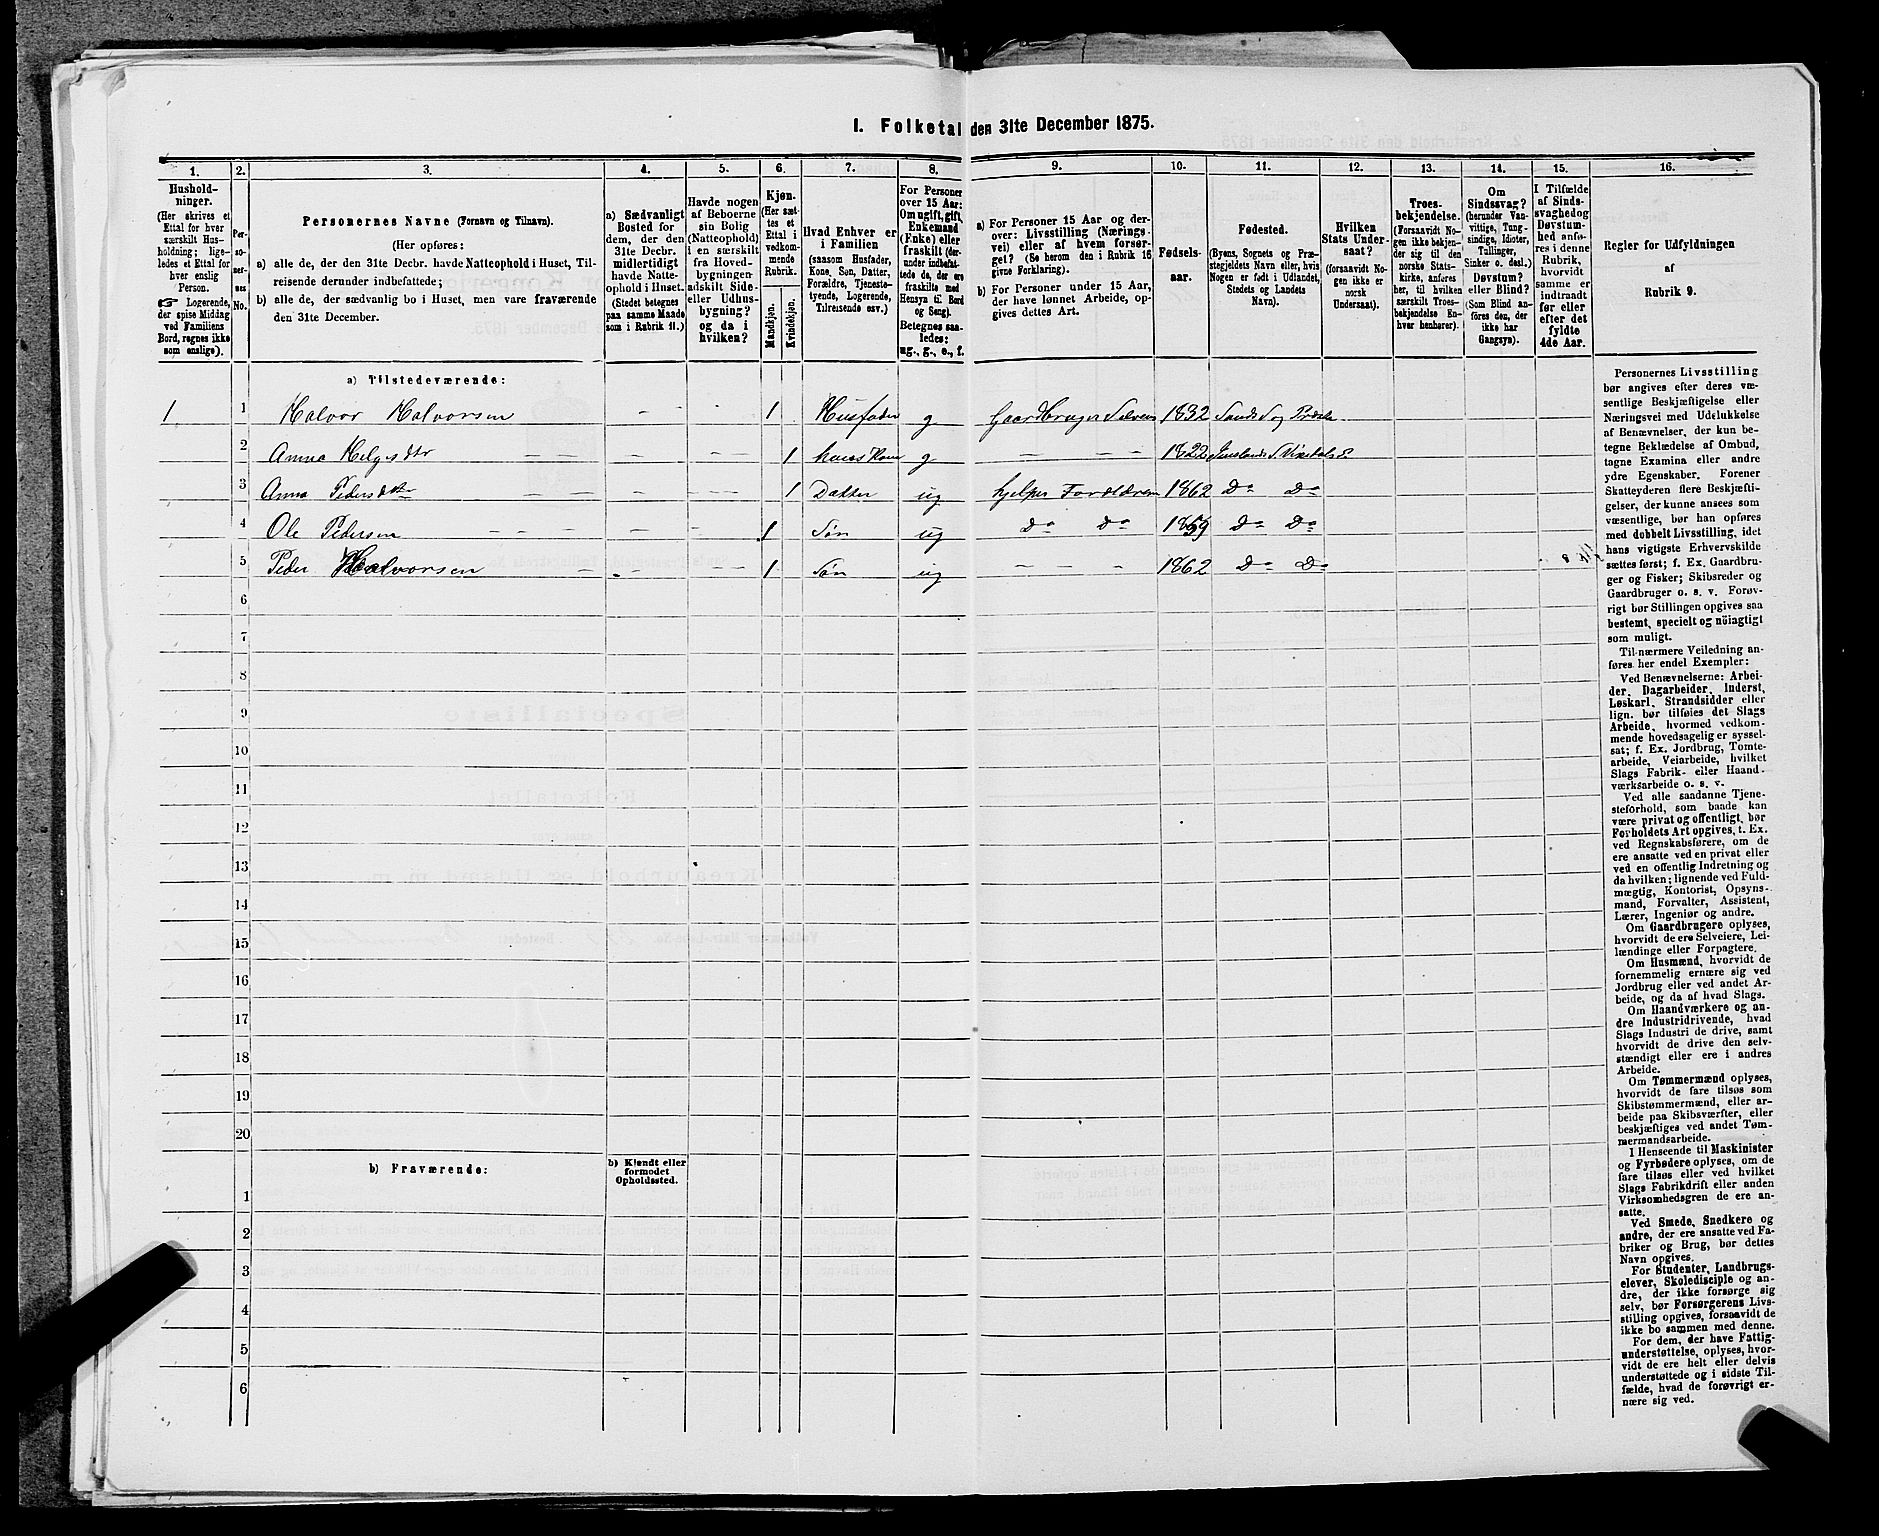 I. Folketal den 31te December 1875.
1. 2. 3. 4. 5. 6. 7. 8. 9. 10. 11. 12. 13. 14. 15. 16.
Hushold-
ninger.
(Her skrives et
Ettal for hver
særskilt Hus-
holdning; lige-
ledes et Ettal for
hver enslig
Person.
☞ Logerende,
der spise Middag
ved Familiens
Bord, regnes ikke
som enslige).
Per-
so-
ner-
nes
No.
Personernes Navne (Fornavn og Tilnavn).
(Her opføres:
a) alle de, der den 31te Decbr. havde Natteophold i Huset, Til-
reisende derunder indbefattede;
b) alle de, der sædvanlig bo i Huset, men vare fraværende
den 31te December.
a) Sædvanligt
Bosted for
dem, der den
31te Decbr.
midlertidigt
havde Natte-
ophold i Huset.
(Stedet betegnes
paa samme Maade
som i Rubrik 11.)
Havde nogen
af Beboerne
sin Bolig
(Natteophold)
i en særskilt
fra Hoved-
bygningen
adskilt Side-
eller Udhus-
bygning?
og da i
hvilken?
Kjøn.
(Her sæt-
tes et
Ettal i
vedkom-
mende
Rubrik.
Mandkjøn.
Kvindekjøn.
Hvad Enhver er
i Familien
(saasom Husfader,
Kone, Søn, Datter,
Forældre, Tjeneste-
tyende, Logerende,
Tilreisende osv.)
For Personer
over 15 Aar:
Om ugift, gift,
Enkemand
(Enke) eller
fraskilt (der-
under indbefat-
tede de, der ere
fraskilte med
Hensyn til Bord
og Seng).
Betegnes saa-
ledes:
ug., g., e., f.
a) For Personer 15 Aar og der-
over: Livsstilling (Nærings-
vei) eller af hvem forsør-
get? (Se herom den i Rubrik 16
givne Forklaring).
b) For Personer under 15 Aar,
der have lønnet Arbeide, op-
gives dettes Art.
Fødsels-
aar.
Fødested.
(Byens, Sognets og Præ-
stegjeldets Navn eller, hvis
Nogen er født i Udlandet,
Stedets og Landets
Navn).
Hvilken
Stats Under-
saat?
(forsaavidt No-
gen ikke er
norsk
Undersaat).
Troes-
bekjendelse.
(Forsaavidt No-
gen ikke bekjen-
der sig til den
norske Stats-
kirke, anføres
her, til hvilken
særskilt Troes-
bekjendelse En-
hver henhører).
Om
Sindssvag?
(herunder Van-
vittige, Tung-
sindige, Idioter,
Tullinger,
Sinker o. desl.)
Døvstum?
eller Blind?
(Som Blind an-
føres den, der
ikke har
Gangsyn).
I Tilfælde
af Sinds-
svaghed og
Døvstum-
hed anfø-
res i denne
Rubrik,
hvorvidt
samme er
indtraadt
før eller
efter det
fyldte
4de Aar.
Regler for Udfyldningen
af
Rubrik 9.
a) Tilstedeværende:
1 1 Halvor Halvorsen - - - 1 Husfader g Gaardbruger 1832
2 Anna Helgesdtr - - - 1 huus Kone g - - 1822
3 Anna Pedersdtr - - - 1 Datter ug hjelper Forældrene 1862 Do Do
4 Ole Pedersen - - - 1 Søn ug Do Do 1859 Do Do
5 Peder Halvorsen - - - 1 Søn ug - - 1862 Do Do
6
7
8
9
10
11
12
13
14
15
16
17
18
19
20
b) Fraværende:
b) Kjendt eller
formodet
Opholdssted.
1
2
3
4
5
6
Personernes Livsstilling
bør angives efter deres væ-
sentlige Beskjæftigelse eller
Næringsvei med Udelukkelse
af Benævnelser, der kun be-
tegne Beklædelse af Ombud,
tagne Examina eller andre
ydre Egenskaber. Forener
Skatteyderen flere Beskjæfti-
gelser, der kunne ansees som
væsentlige, bør han opføres
med dobbelt Livsstilling, idet
hans vigtigste Erhvervskilde
sættes først; f. Ex. Gaardbru-
ger og Fisker; Skibsreder og
Gaardbruger o. s. v. Forøv-
rigt bør Stillingen opgives saa
bestemt, specielt og nöiagtigt
som muligt.
Til nærmere Veiledning an-
føres her endel Exempler:
Ved Benævnelserne: Arbei-
der, Dagarbeider, Inderst,
Løskarl, Strandsidder eller
lign. bør tilføies det Slags
Arbeide, hvormed vedkom-
mende hovedsagelig er syssel-
sat; f. Ex. Jordbrug, Tomte-
arbeide, Veiarbeide, hvilket
Slags Fabrik- eller Haand-
værksarbeide o. s. v.
Ved alle saadanne Tjene-
steforhold, som baade kan
være privat og offentligt, bør
Forholdets Art opgives, t. Ex.
ved Regnskabsførere, om de
ere ansatte ved en privat eller
ved en offentlig Indretning og
da hvilken; lignende ved Fuld-
mægtig, Kontorist, Opsyns-
mand, Forvalter, Assistent,
Lærer, Ingeniør og andre.
Om Gaardbrugere oplyses,
hvorvidt de ere Selveiere, Lei-
lændinge eller Forpagtere.
Om Husmænd, hvorvidt de
fornemmelig ernære sig ved
Jordbrug eller ved andet Ar-
beide, og da af hvad Slags.
Om Haandværkere og an-
dre Industridrivende, hvad
Slags Industri de drive, samt
hvorvidt de drive den selv-
stændigt eller ere i andres
Arbeide.
Om Tømmermænd oplyses,
hvorvidt de fare tilsøs som
Skibstømmermænd, eller ar-
beide paa Skibsværfter, eller
beskjæftiges ved andet Tøm-
mermandsarbeide.
I Henseende til Maskinister
og Fyrbødere oplyses, om de
fare tilsøs eller ved hvilket
Slags Fabrikdrift eller anden
Virksomhedsgren de ere an-
satte.
Ved Smede, Snedkere og
andre, der ere ansatte ved Fa-
briker og Brug, bør dettes
Navn opgives.
For Studenter, Landbrugs-
elever, Skoledisciple og an-
dre, der ikke forsørge sig
selv, bør Forsørgerens Livs-
stilling opgives, forsaavidt de
ikke bo sammen med denne.
For dem, der have Fattig-
understøttelse, oplyses, hvor-
vidt de ere helt eller delvis
understøttede og i sidste Til-
fælde, hvad de forøvrigt er-
nære sig ved.